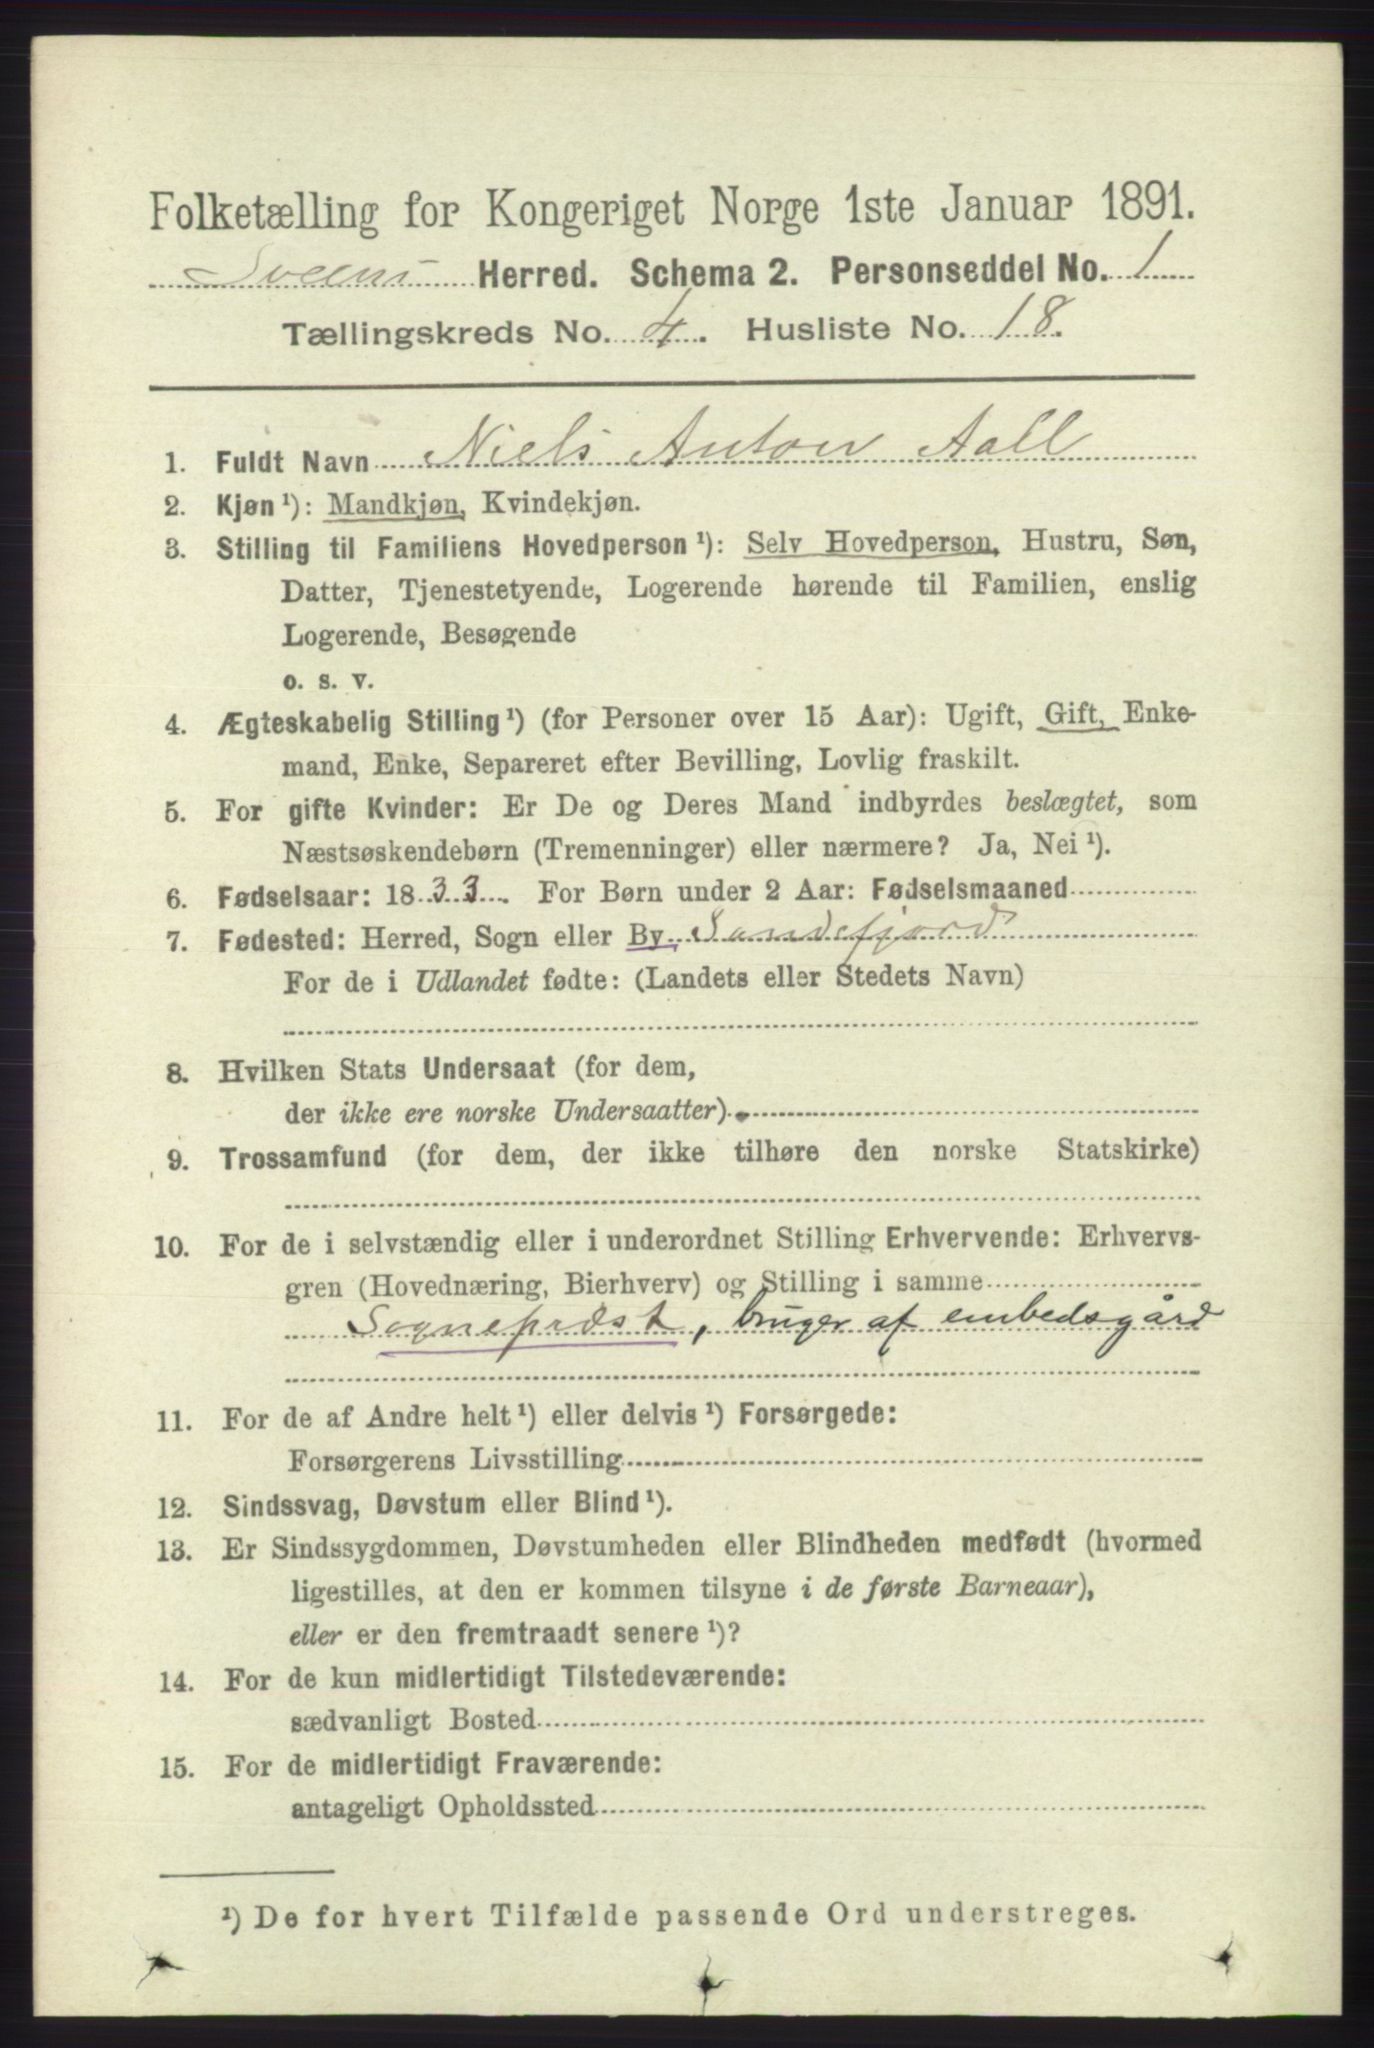 Folketælling for Kongeriget Norge 1ste Januar 1891.
Sveens Herred. Schema 2. Personseddel No. 1
Tællingskreds No. 4. Husliste No. 18.
1. Fuldt Navn Niels Anton Aall
2. Kjøn ¹): Mandkjøn, Kvindekjøn.
3. Stilling til Familiens Hovedperson ¹): Selv Hovedperson, Hustru, Søn,
Datter, Tjenestetyende, Logerende hørende til Familien, enslig
Logerende, Besøgende
o. s. v.
4. Ægteskabelig Stilling ¹) (for Personer over 15 Aar): Ugift, Gift, Enke-
mand, Enke, Separeret efter Bevilling, Lovlig fraskilt.
5. For gifte Kvinder: Er De og Deres Mand indbyrdes beslægtet, som
Næstsøskendebørn (Tremenninger) eller nærmere? Ja, Nei ¹).
6. Fødselsaar: 1833. For Børn under 2 Aar: Fødselsmaaned
7. Fødested: Herred, Sogn eller By Sandefjord
For de i Udlandet fødte: (Landets eller Stedets Navn)
8. Hvilken Stats Undersaat (for dem,
der ikke ere norske Undersaatter)
9. Trossamfund (for dem, der ikke tilhøre den norske Statskirke)
10. For de i selvstændig eller i underordnet Stilling Erhvervende: Erhvervs-
gren (Hovednæring, Bierhverv) og Stilling i samme
Sognepræst, bruger af embedsgård
11. For de af Andre helt ¹) eller delvis ¹) Forsørgede:
Forsørgerens Livsstilling
12. Sindssvag, Døvstum eller Blind ¹).
13. Er Sindssygdommen, Døvstumheden eller Blindheden medfødt (hvormed
ligestilles, at den er kommen tilsyne i de første Barneaar),
eller er den fremtraadt senere ¹)?
14. For de kun midlertidigt Tilstedeværende:
sædvanligt Bosted
15. For de midlertidigt Fraværende:
antageligt Opholdssted
¹) De for hvert Tilfælde passende Ord understreges.